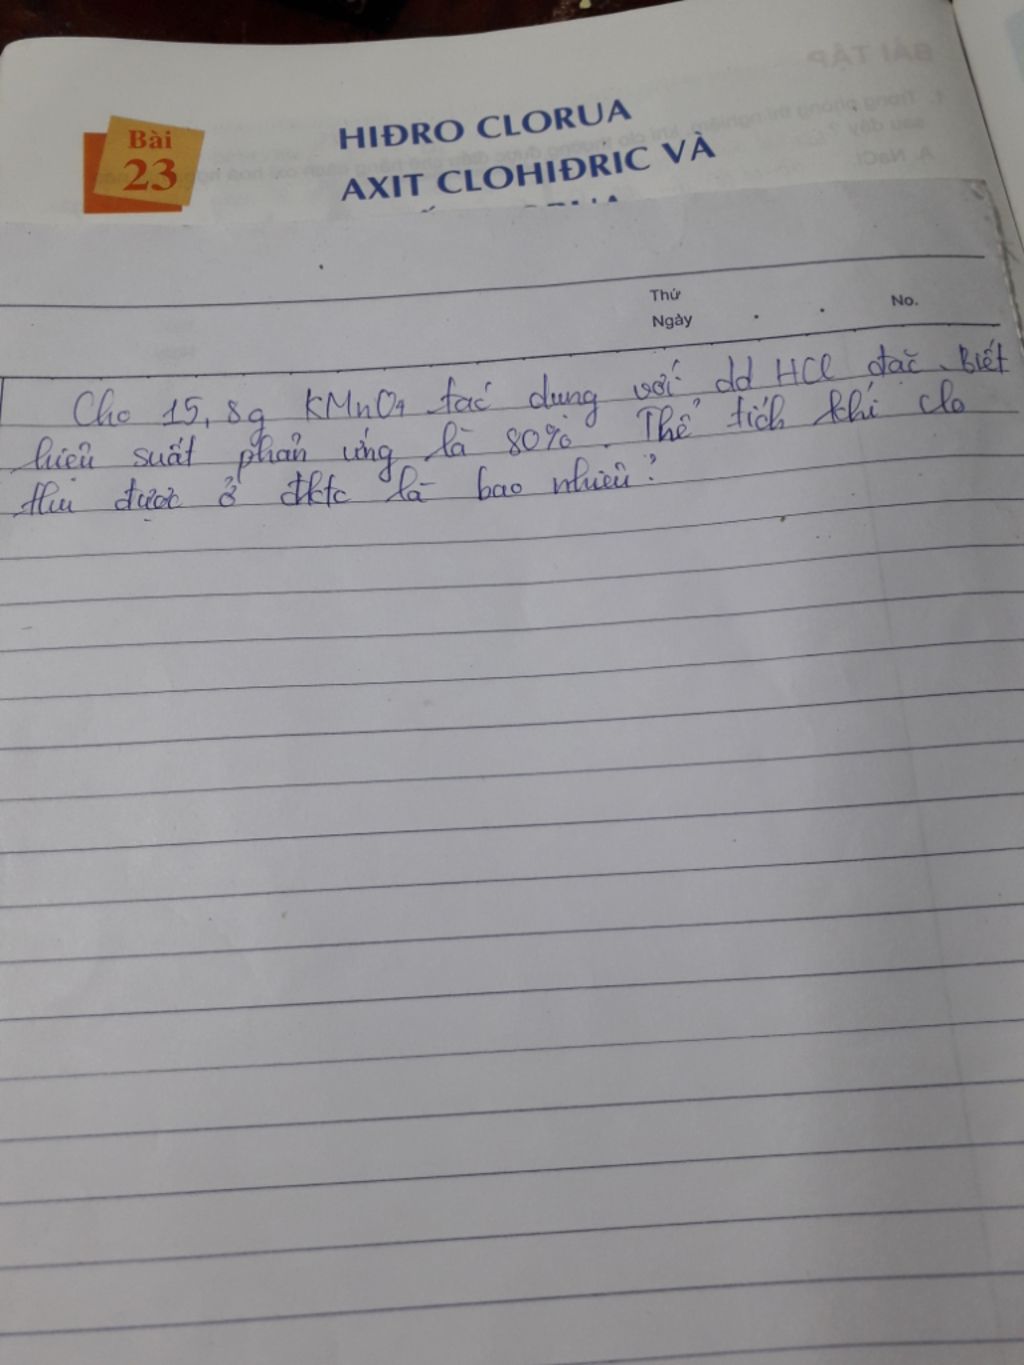 Bài
23
HIĐRO CLORUA
AXIT CLOHIĐRIC VÀ
Thứ
Ngày
No.
Cho 15,8g KMnO4 tác dụng với dd HCl đặc. Biết
hiệu suất phản ứng là 80%. Thể tích khí clo
thu được ở đktc là bao nhiêu?